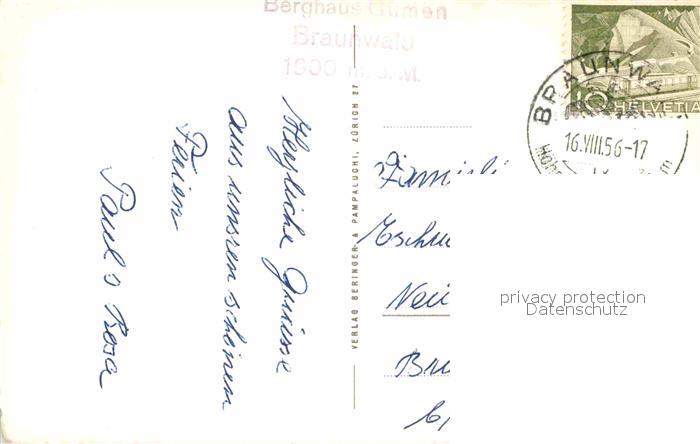 Berghaus Gumen
Braunwald
1900 m.ü.M.
Herzliche Grüsse
aus unsren schönen
Ferien
Paul & Rosa
VERLAG BERINGER & PAMPALUCHI, ZÜRICH 27
10 HELVETIA
BRAUNWA
16.VIII.56-17
Familie
privacy protection
Datenschutz